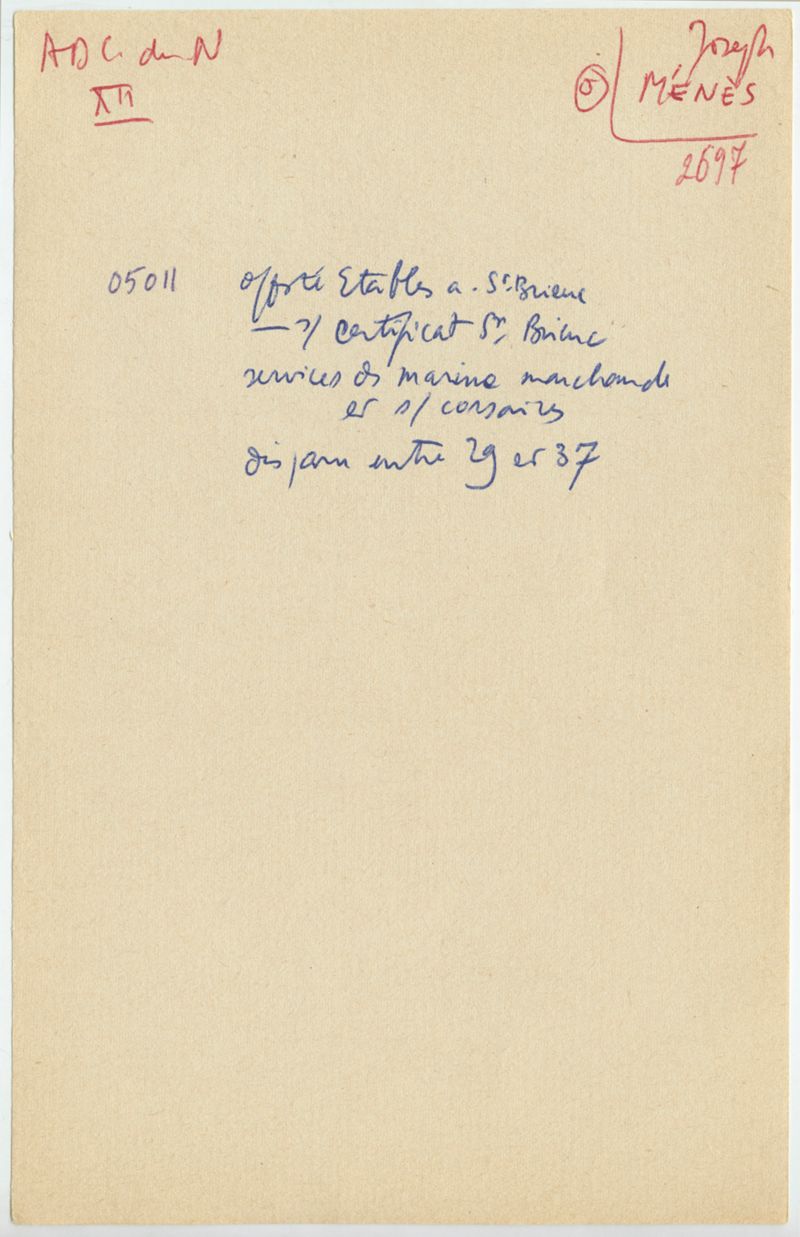 AD C. du N
XII
Joseph
MÉNÈS
2697
05011 Etables a. St. Brieuc
— s/ certificat St. Brieuc
services ds marine marchande
et s/ corsaires
disparu entre 29 et 37